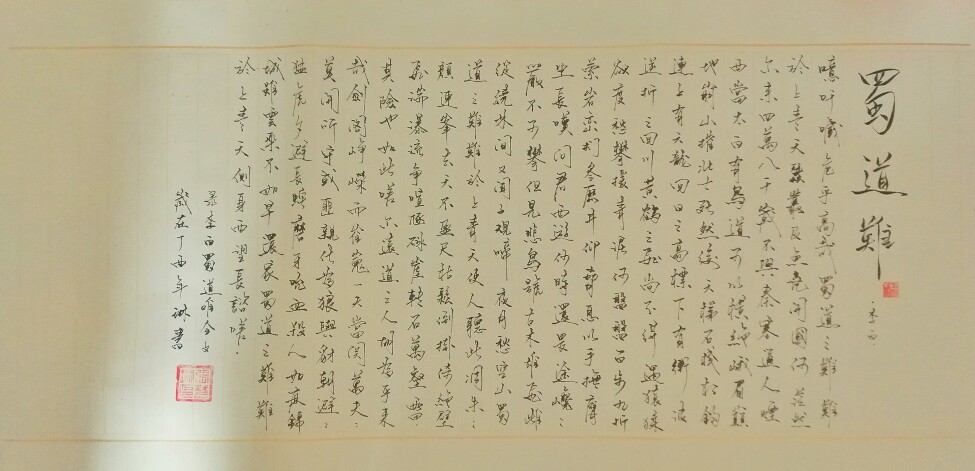 蜀道難
李白
噫吁嚱危乎高哉蜀道之難難
於上青天蠶叢及魚鳧開國何茫然
尔来四萬八千歲不與秦塞通人煙
西當太白有鳥道可以橫絶峨眉巔
地崩山摧壯士死然後天梯石棧相鉤
連上有六龍回日之高標下有衝波
逆折之回川黃鶴之飛尚不得過猿猱
欲度愁攀援青泥何盤盤百步九折
縈岩巒捫參歷井仰脅息以手撫膺
坐長嘆問君西遊何時還畏途巉〻
巖不可攀但見悲鳥號古木雄飛雌
從繞林間又聞子規啼夜月愁空山蜀
道之難難於上青天使人聽此凋朱〻
顏連峯去天不盈尺枯松倒掛倚絶壁
飛湍瀑流爭喧豗砯崖轉石萬壑雷
其險也如此嗟尔遠道之人胡為乎来
哉劍閣崢嶸而崔嵬一夫當関萬夫〻
莫開所守或匪親化為狼與豺朝避〻
猛虎夕避長蛇磨牙吮血殺人如麻錦
城雖雲樂不如早還家蜀道之難難
於上青天側身西望長諮嗟
录李白蜀道難全文
歲在丁酉年琳書